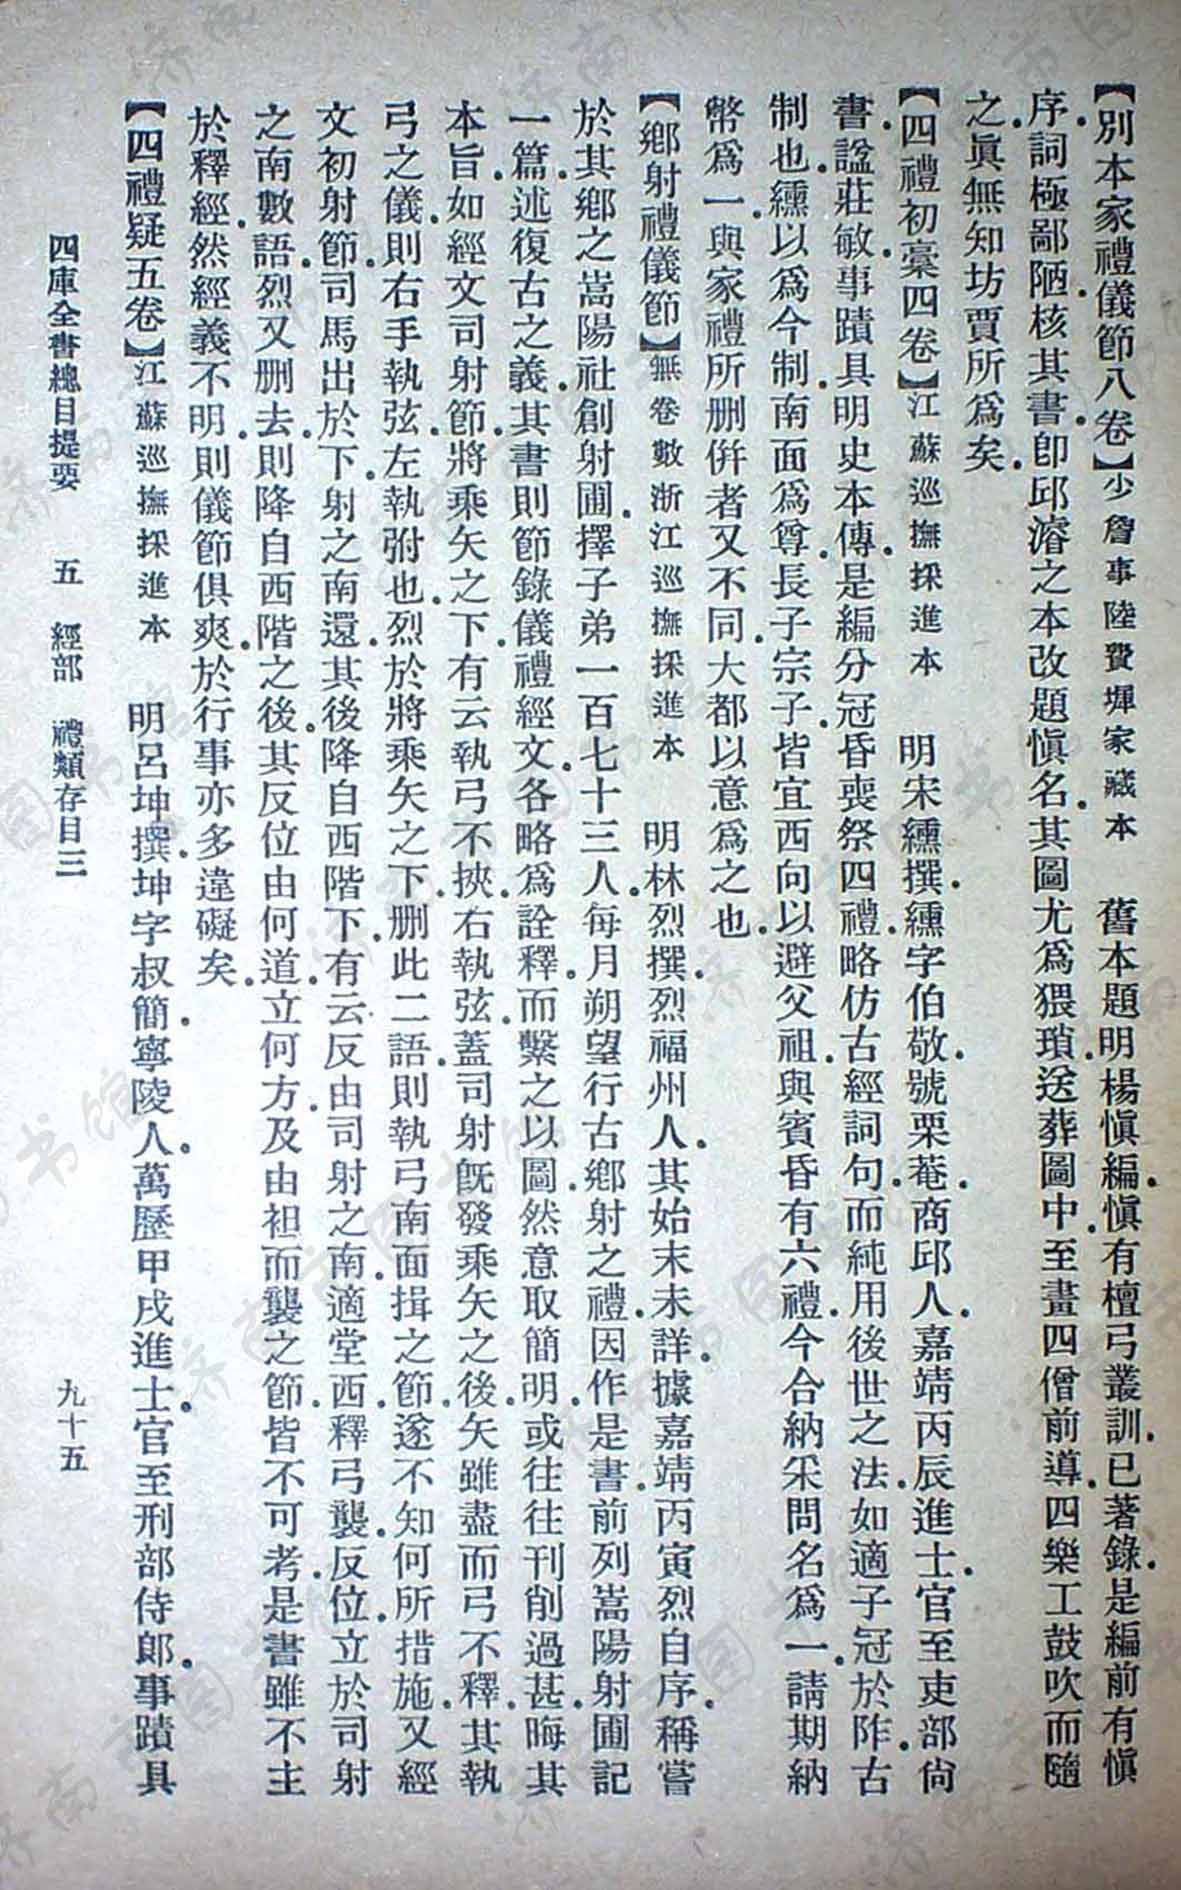 【別本家禮儀節八卷】少詹事陸費墀家藏本　舊本題明楊愼編.愼有檀弓叢訓.已著錄.是編前有愼
序.詞極鄙陋.核其書.卽邱濬之本.改題愼名.其圖尤爲猥瑣.送葬圖中.至畫四僧前導.四樂工鼓吹而隨
之.眞無知坊賈所爲矣.
【四禮初稾四卷】江蘇巡撫採進本　明宋纁撰.纁字伯敬.號栗菴.商邱人.嘉靖丙辰進士.官至吏部尙
書.諡莊敏.事蹟具明史本傳.是編分冠昏喪祭四禮.略仿古經詞句.而純用後世之法.如適子冠於阼.古
制也.纁以爲今制.南面爲尊.長子宗子.皆宜西向.以避父祖.與賓昏有六禮.今合納采問名爲一.請期納
幣爲一.與家禮所删倂者又不同.大都以意爲之也.
【鄕射禮儀節】無卷數浙江巡撫採進本　明林烈撰.烈福州人.其始末未詳.據嘉靖丙寅烈自序.稱嘗
於其鄕之嵩陽社創射圃.擇子弟一百七十三人.每月朔望行古鄕射之禮.因作是書.前列嵩陽射圃記
一篇.述復古之義.其書則節錄儀禮經文.各略爲詮釋.而繫之以圖.然意取簡明.或往往刊削過甚.晦其
本旨.如經文司射節.將乘矢之下.有云執弓不挾.右執弦.蓋司射旣發乘矢之後.矢雖盡而弓不釋.其執
弓之儀.則右手執弦.左執弣也.烈於將乘矢之下.删此二語.則執弓南面揖之節.遂不知何所措施.又經
文初射節.司馬出於下射之南.還其後.降自西階下.有云反由司射之南.適堂西.釋弓襲.反位.立於司射
之南數語.烈又删去.則降自西階之後.其反位由何道.立何方.及由袒而襲之節.皆不可考.是書雖不主
於釋經.然經義不明.則儀節俱爽.於行事亦多違礙矣.
【四禮疑五卷】江蘇巡撫採進本　明呂坤撰.坤字叔簡.寧陵人.萬歷甲戌進士.官至刑部侍郞.事蹟具
四庫全書總目提要　五　經部　禮類存目三　九十五